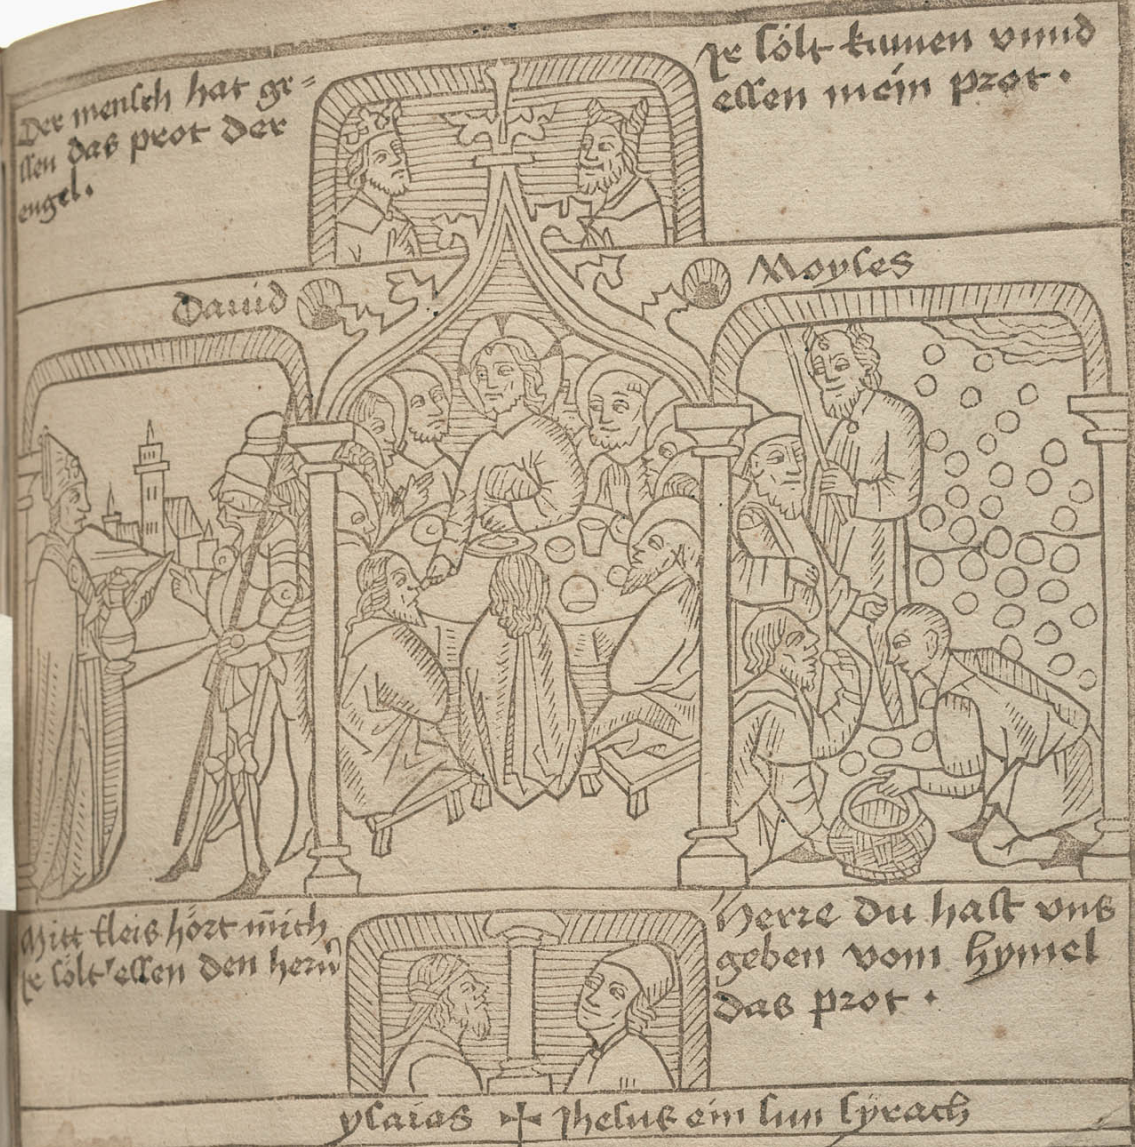 Der mensch hat ge=
ssen das prot der
engel.
Ir sölt kumen vnnd
essen mein prot.
Dauid
Moyses
Mitt fleis hört mich
ir sölt essen den herñ
Herre du hast vns
geben vom hymel
das prot.
ysaias ✠ Jhesus ein sun syrach